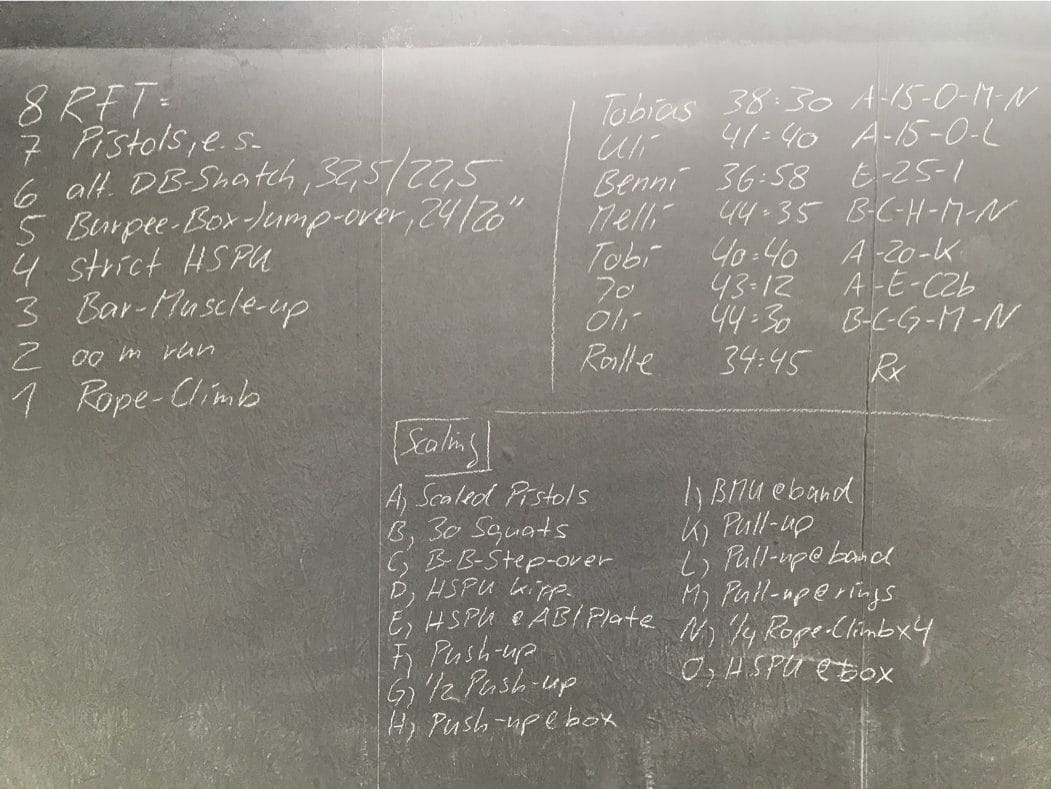 8 RFT:
7 Pistols, e.s.
6 alt. DB-Snatch, 32,5/22,5
5 Burpee-Box-Jump-over, 24/20"
4 strict HSPU
3 Bar-Muscle-up
2 oo m run
1 Rope-Climb
Tobias 38:30 A-15-O-M-N
Uli 41:40 A-15-O-L
Benni 36:58 E-25-I
Melli 44:35 B-C-H-M-N
Tobi 40:40 A-20-K
Jo 43:12 A-E-C2b
Oli 44:30 B-C-G-M-N
Ralle 34:45 Rx
Scaling
A) Scaled Pistols
B) 30 Squats
C) B-B-Step-over
D) HSPU kipp.
E) HSPU @ AB/Plate
F) Push-up
G) 1/2 Push-up
H) Push-up @ box
I) BMU @ band
K) Pull-up
L) Pull-up @ band
M) Pull-up @ rings
N) 1/4 Rope-Climb x 4
O) HSPU @ box